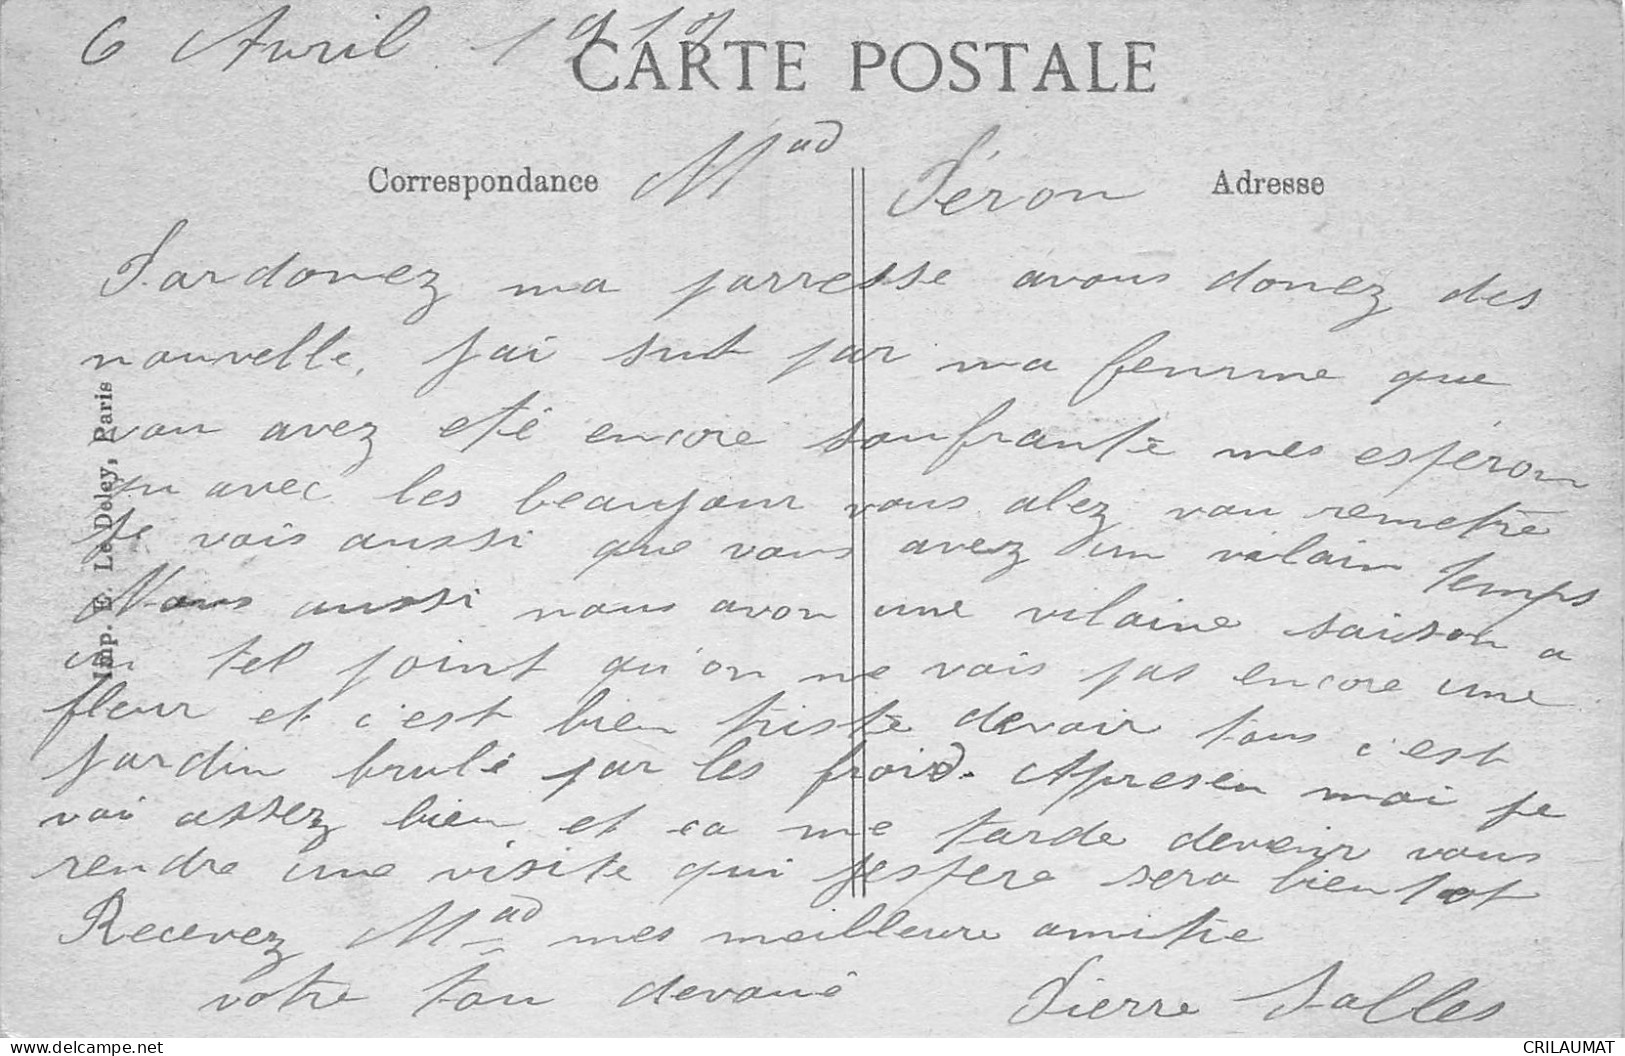 6 Avril 1917
CARTE POSTALE
Correspondance Mad Péron Adresse
Pardonez ma parresse avous donez des
nouvelle, jai sut par ma femme que
vou avez eté encore soufrante mes espéron
qu avec les beaujour vous alez vou remetre
Je vois aussi que vous avez un vilain temps
Nous aussi nous avon une vilaine saison a
un tel point qu'on ne vois pas encore une
fleur et c'est bien triste devoir tous c'est
jardin brulé par les froid. Apresen moi je
vai assez bien et ca me tarde devenir vous
rendre une visite qui jespere sera bientot
Recevez Mad mes meilleure amitie
votre tou devoué Pierre Salles
Imp. E. Le Deley, Paris
CRILAUMAT